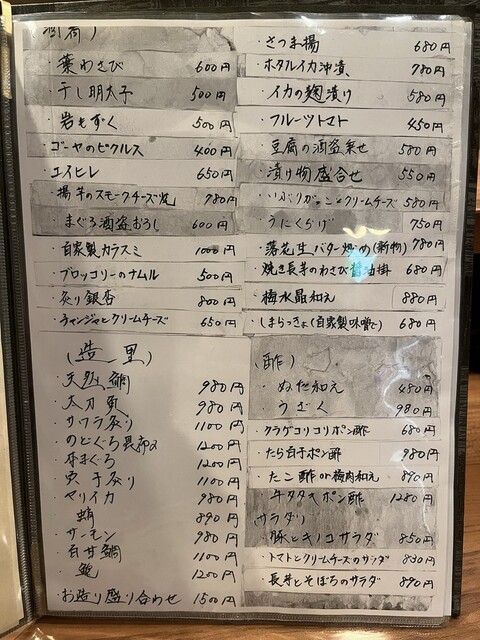 ・葉わさび 600円
・干し明太子 500円
・岩もずく 500円
ゴーヤのピクルス 400円
・エイヒレ 650円
・揚芋のスモークチーズ 780円
・まぐろ酒盗おろし 600円
・自家製カラスミ 1000円
・ブロッコリーのナムル 500円
・炙り銀杏 800円
・チャンジャとクリームチーズ 650円
(造里)
・天然鯛 980円
・太刀魚 980円
・サワラ炙り 1100円
・のどぐろ昆布〆 1200円
・本まぐろ 1200円
炙り 1100円
・ヤリイカ 980円
・蛸 890円
・サーモン 980円
・石井鯛 1100円
・ 1200円
・お造り盛り合わせ 1500円
・さつま揚 680円
・ホタルイカ沖漬 780円
・イカの麹漬け 580円
・フルーツトマト 450円
・豆腐の酒盗乗せ 580円
・漬け物盛合せ 550円
・いぶりがっことクリームチーズ 580円
・うにくらげ 750円
・落花生バター炒め(新物) 780円
・焼き長芋のわさび醤油掛 680円
・梅水晶和え 880円
・しまらっきょ(自家製味噌で) 680円
(酢)
・ぬた和え 480円
・うざく 980円
・クラゲコリコリポン酢 680円
・たら白子ポン酢 980円
・たこ酢or梅肉和え 890円
・牛タタキポン酢 1280円
サラダ
・豚とキノコサラダ 850円
・トマトとクリームチーズのサラダ 830円
・長芋とそぼろのサラダ 890円